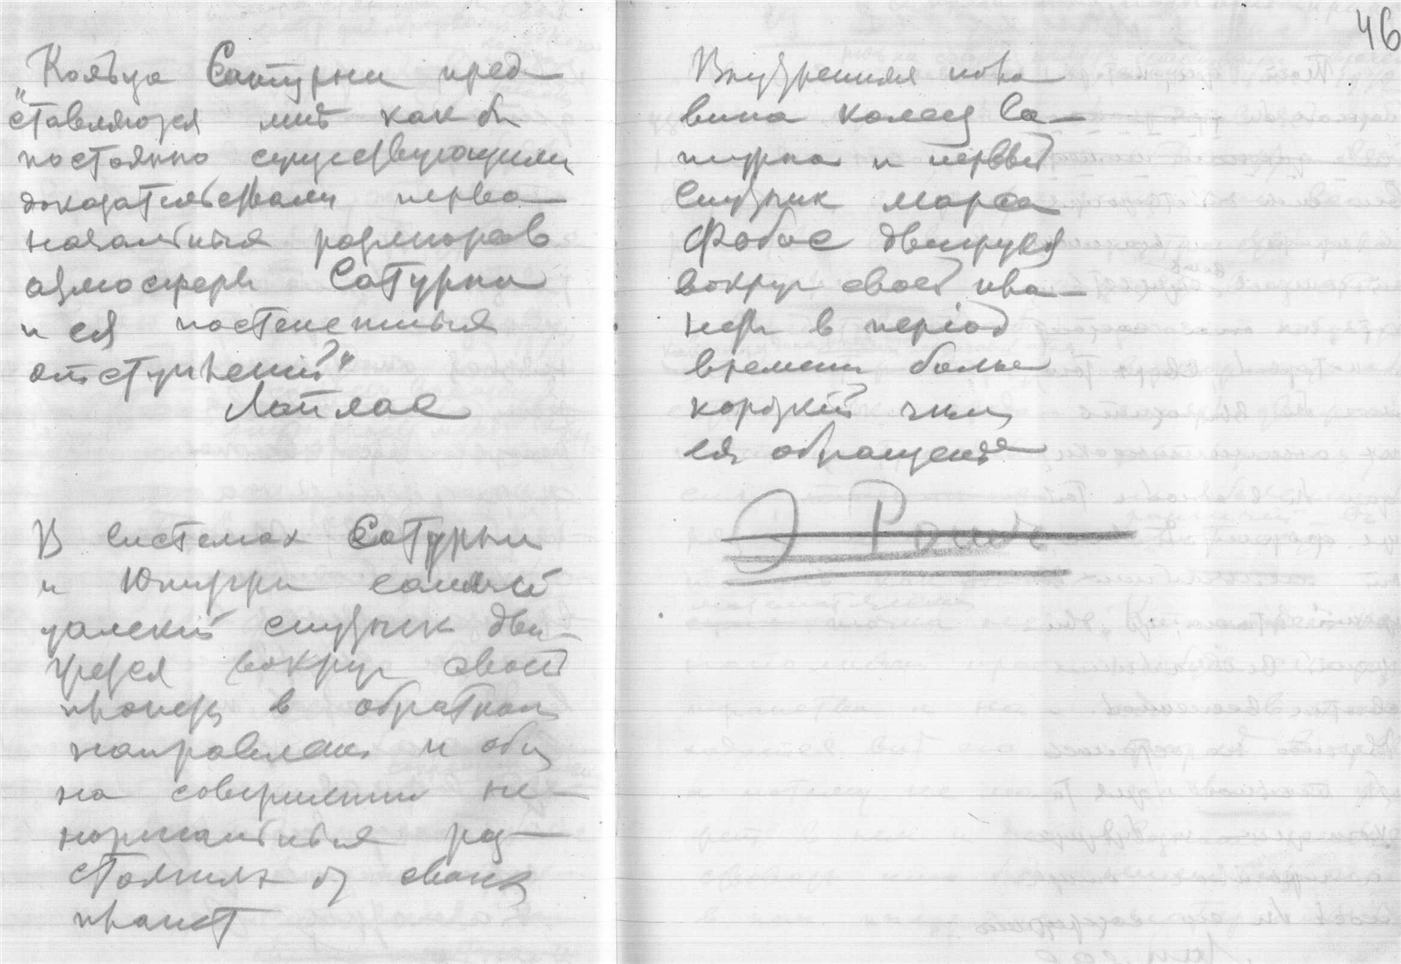 „Кольца Сатурна пред-
ставляются мнѣ какбы
постоянно существующими
доказательствами перво-
начальныя размѣровъ
атмосферы Сатурна
и ея постепенныя
отступленій?“
Лаплас
В системах Сатурна
и Юпитера самый
далекий спутник дви-
жется вокруг своей
планеты в обратном
направлении и оба
на совершенно не-
нормальныя раз-
стояниях от своих
планет
46
Внутренняя поло-
вина колец Са-
турна и первый
спутник Марса
Фобос движутся
вокруг своей пла-
неты в період
времени более
короткий чем
ея обращение
Э Роше